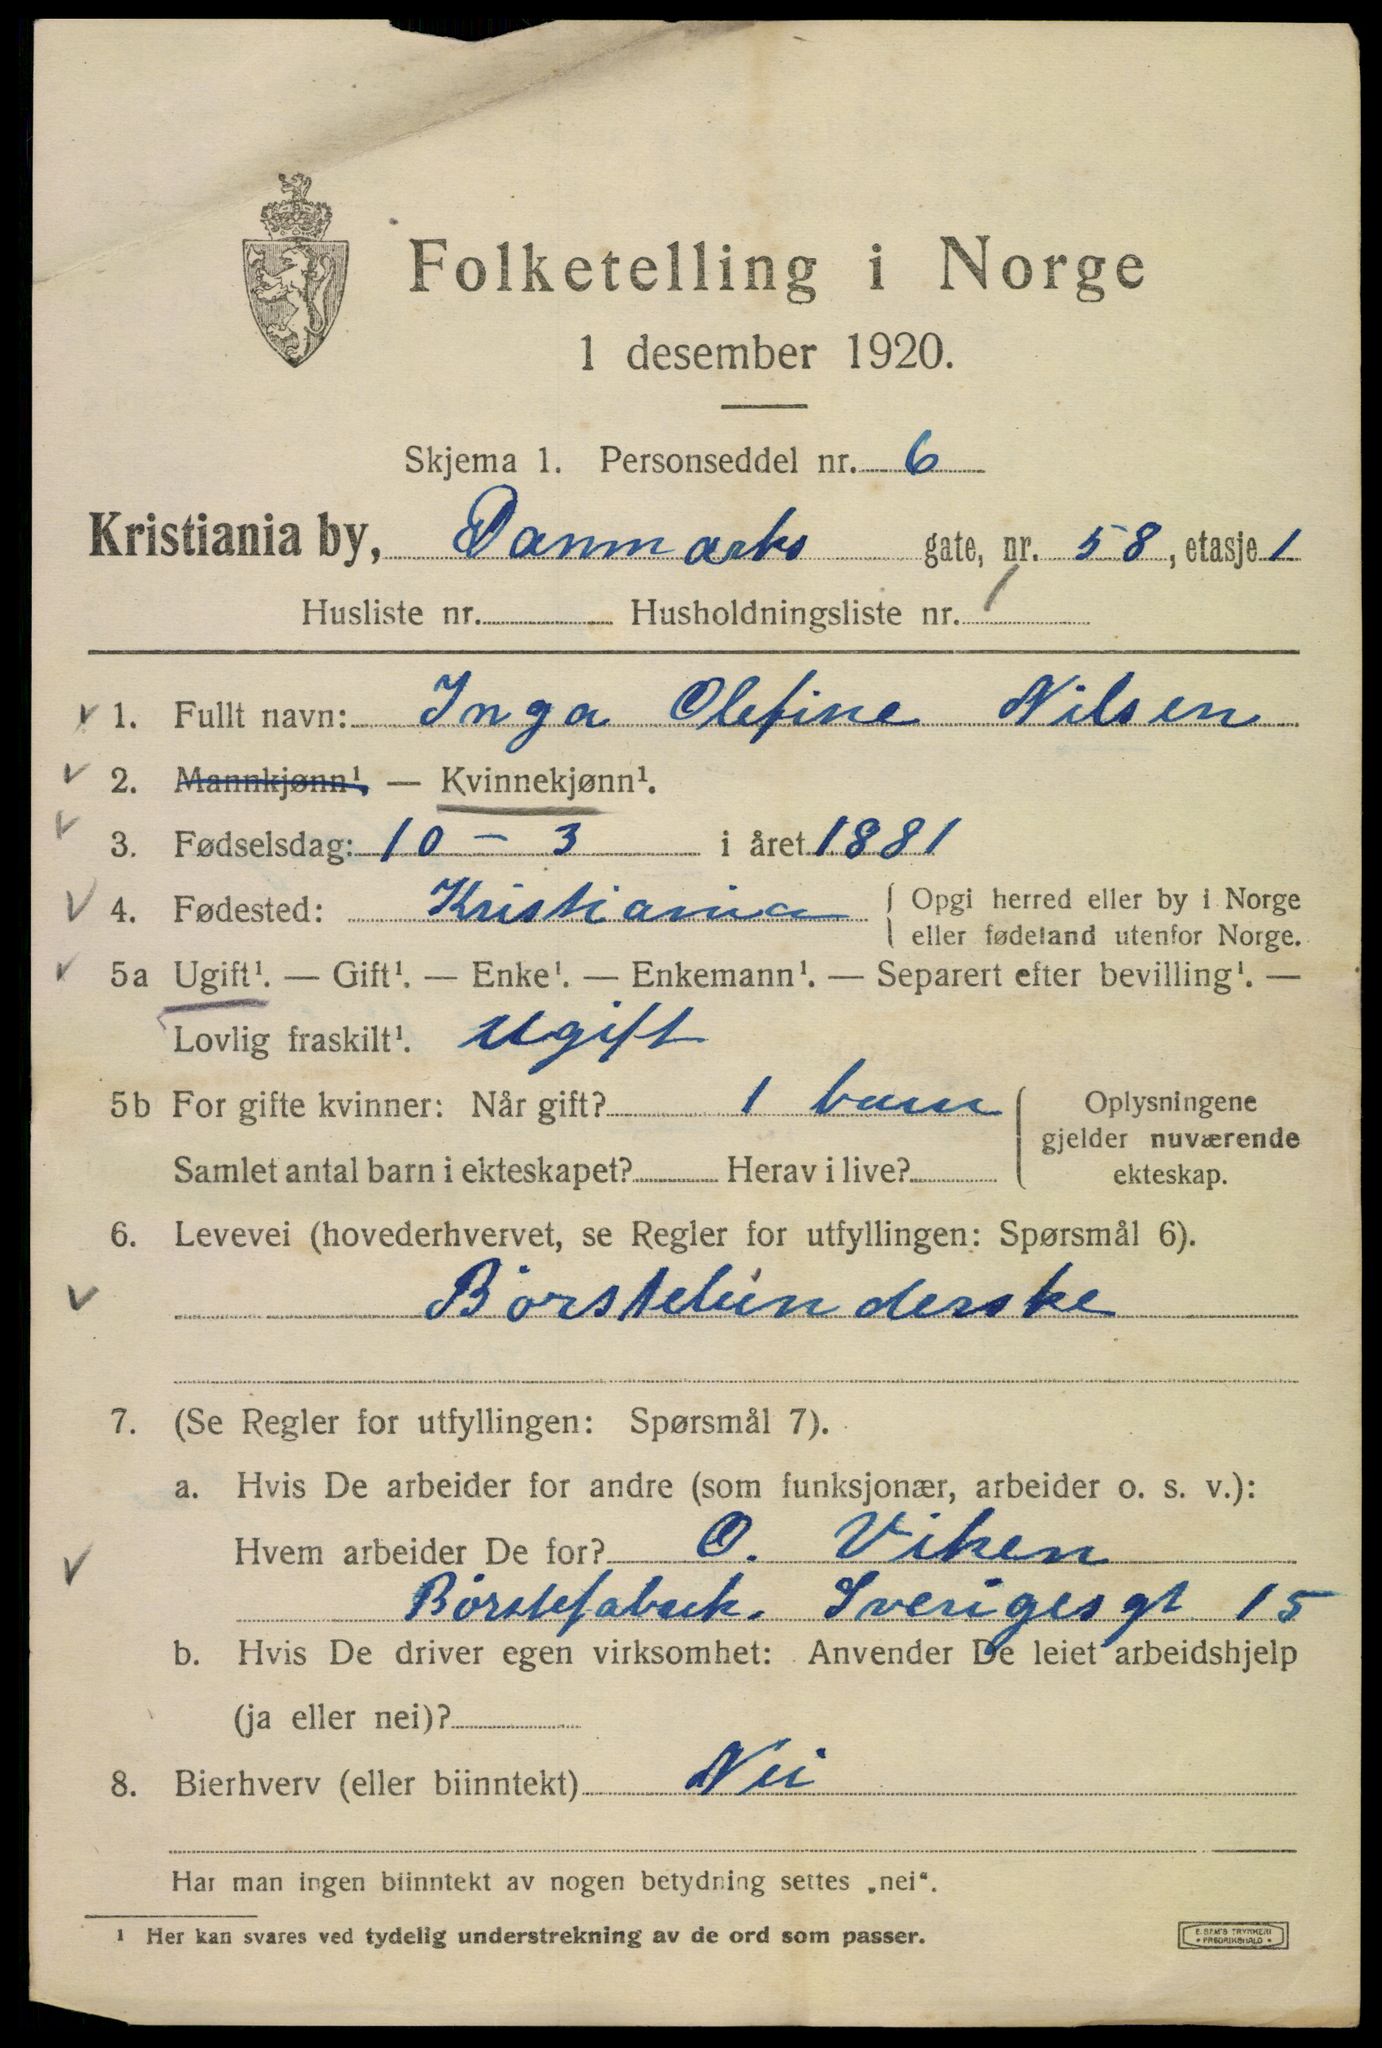 Folketelling i Norge
1 desember 1920.
Skjema 1. Personseddel nr. 6
Kristiania by, Danmarks gate, nr. 58, etasje 1
Husliste nr. Husholdningsliste nr. 1
1. Fullt navn: Inga Olefine Nilsen
2. Mannkjønn¹. — Kvinnekjønn¹.
3. Fødselsdag: 10 – 3 i året 1881
4. Fødested: Kristiania { Opgi herred eller by i Norge
eller fødeland utenfor Norge.
5a Ugift¹. — Gift¹. — Enke¹. — Enkemann¹. — Separert efter bevilling¹. —
Lovlig fraskilt¹. Ugift
5b For gifte kvinner: Når gift? 1 barn { Oplysningene
gjelder nuværende
Samlet antal barn i ekteskapet? Herav i live? ekteskap.
6. Levevei (hovederhvervet, se Regler for utfyllingen: Spørsmål 6).
Börstebinderske
7. (Se Regler for utfyllingen: Spørsmål 7).
a. Hvis De arbeider for andre (som funksjonær, arbeider o. s. v.):
Hvem arbeider De for? O. Viken
Börstefabrik. Sverigesgt 15
b. Hvis De driver egen virksomhet: Anvender De leiet arbeidshjelp
(ja eller nei)?
8. Bierhverv (eller biinntekt) Nei
Har man ingen biinntekt av nogen betydning settes „nei“.
¹ Her kan svares ved tydelig understrekning av de ord som passer.
E. SEM'S TRYKKERI
• FREDRIKSHALD •